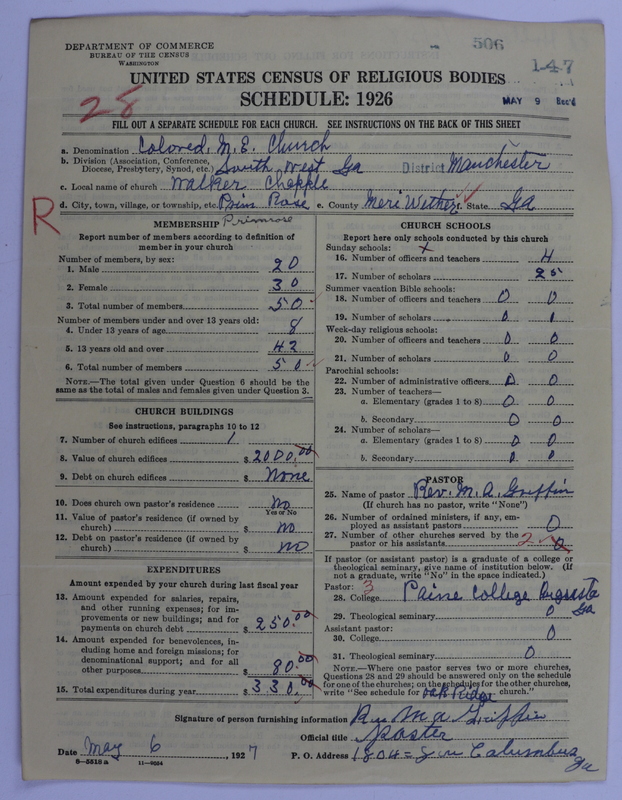 DEPARTMENT OF COMMERCE
BUREAU OF THE CENSUS
WASHINGTON
506
147
UNITED STATES CENSUS OF RELIGIOUS BODIES
SCHEDULE: 1926
MAY 9 Rec'd
28
FILL OUT A SEPARATE SCHEDULE FOR EACH CHURCH. SEE INSTRUCTIONS ON THE BACK OF THIS SHEET
a. Denomination Colored M. E. Church
b. Division (Association, Conference, Diocese, Presbytery, Synod, etc.) South West Ga District Manchester
c. Local name of church Walker Chapple
d. City, town, village, or township, etc. Prim Rose e. County Meri Wether f. State Ga
R
Primrose
MEMBERSHIP
Report number of members according to definition of
member in your church
Number of members, by sex:
1. Male 20
2. Female 30
3. Total number of members 50
Number of members under and over 13 years old:
4. Under 13 years of age 8
5. 13 years old and over 42
6. Total number of members 50
NOTE.—The total given under Question 6 should be the
same as the total of males and females given under Question 3.
CHURCH BUILDINGS
See instructions, paragraphs 10 to 12
7. Number of church edifices 1
8. Value of church edifices $ 2000.00
9. Debt on church edifices $ None
10. Does church own pastor's residence No
Yes or No
11. Value of pastor's residence (if owned by
church) $ No
12. Debt on pastor's residence (if owned by
church) $ No
EXPENDITURES
Amount expended by your church during last fiscal year
13. Amount expended for salaries, repairs,
and other running expenses; for im-
provements or new buildings; and for
payments on church debt $ 250.00
14. Amount expended for benevolences, in-
cluding home and foreign missions; for
denominational support; and for all
other purposes $ 80.00
15. Total expenditures during year $ 330.00
CHURCH SCHOOLS
Report here only schools conducted by this church
Sunday schools: x
16. Number of officers and teachers 4
17. Number of scholars 25
Summer vacation Bible schools:
18. Number of officers and teachers 0 0
19. Number of scholars 0
Week-day religious schools:
20. Number of officers and teachers 0 0
21. Number of scholars 0 0
Parochial schools:
22. Number of administrative officers 0 0
23. Number of teachers—
a. Elementary (grades 1 to 8) 0 0
b. Secondary 0 0
24. Number of scholars—
a. Elementary (grades 1 to 8) 0 0
b. Secondary 0 0
PASTOR
25. Name of pastor Rev. M. A. Griffin
(If church has no pastor, write "None")
26. Number of ordained ministers, if any, em-
ployed as assistant pastors 0
27. Number of other churches served by the
pastor or his assistants 2
If pastor (or assistant pastor) is a graduate of a college or
theological seminary, give name of institution below. (If
not a graduate, write "No" in the space indicated.)
Pastor: 3
28. College Paine College Augusta Ga
29. Theological seminary 0
Assistant pastor:
30. College 0
31. Theological seminary 0
NOTE.—Where one pastor serves two or more churches,
Questions 28 and 29 should be answered only on the schedule
for one of the churches; on the schedules for the other churches,
write "See schedule for Oak Ridge church."
Signature of person furnishing information Rev M A Griffin
Official title Paster
Date May 6, 1927
P. O. Address 1804 Columbus Ga
6—5518 a 11—9064